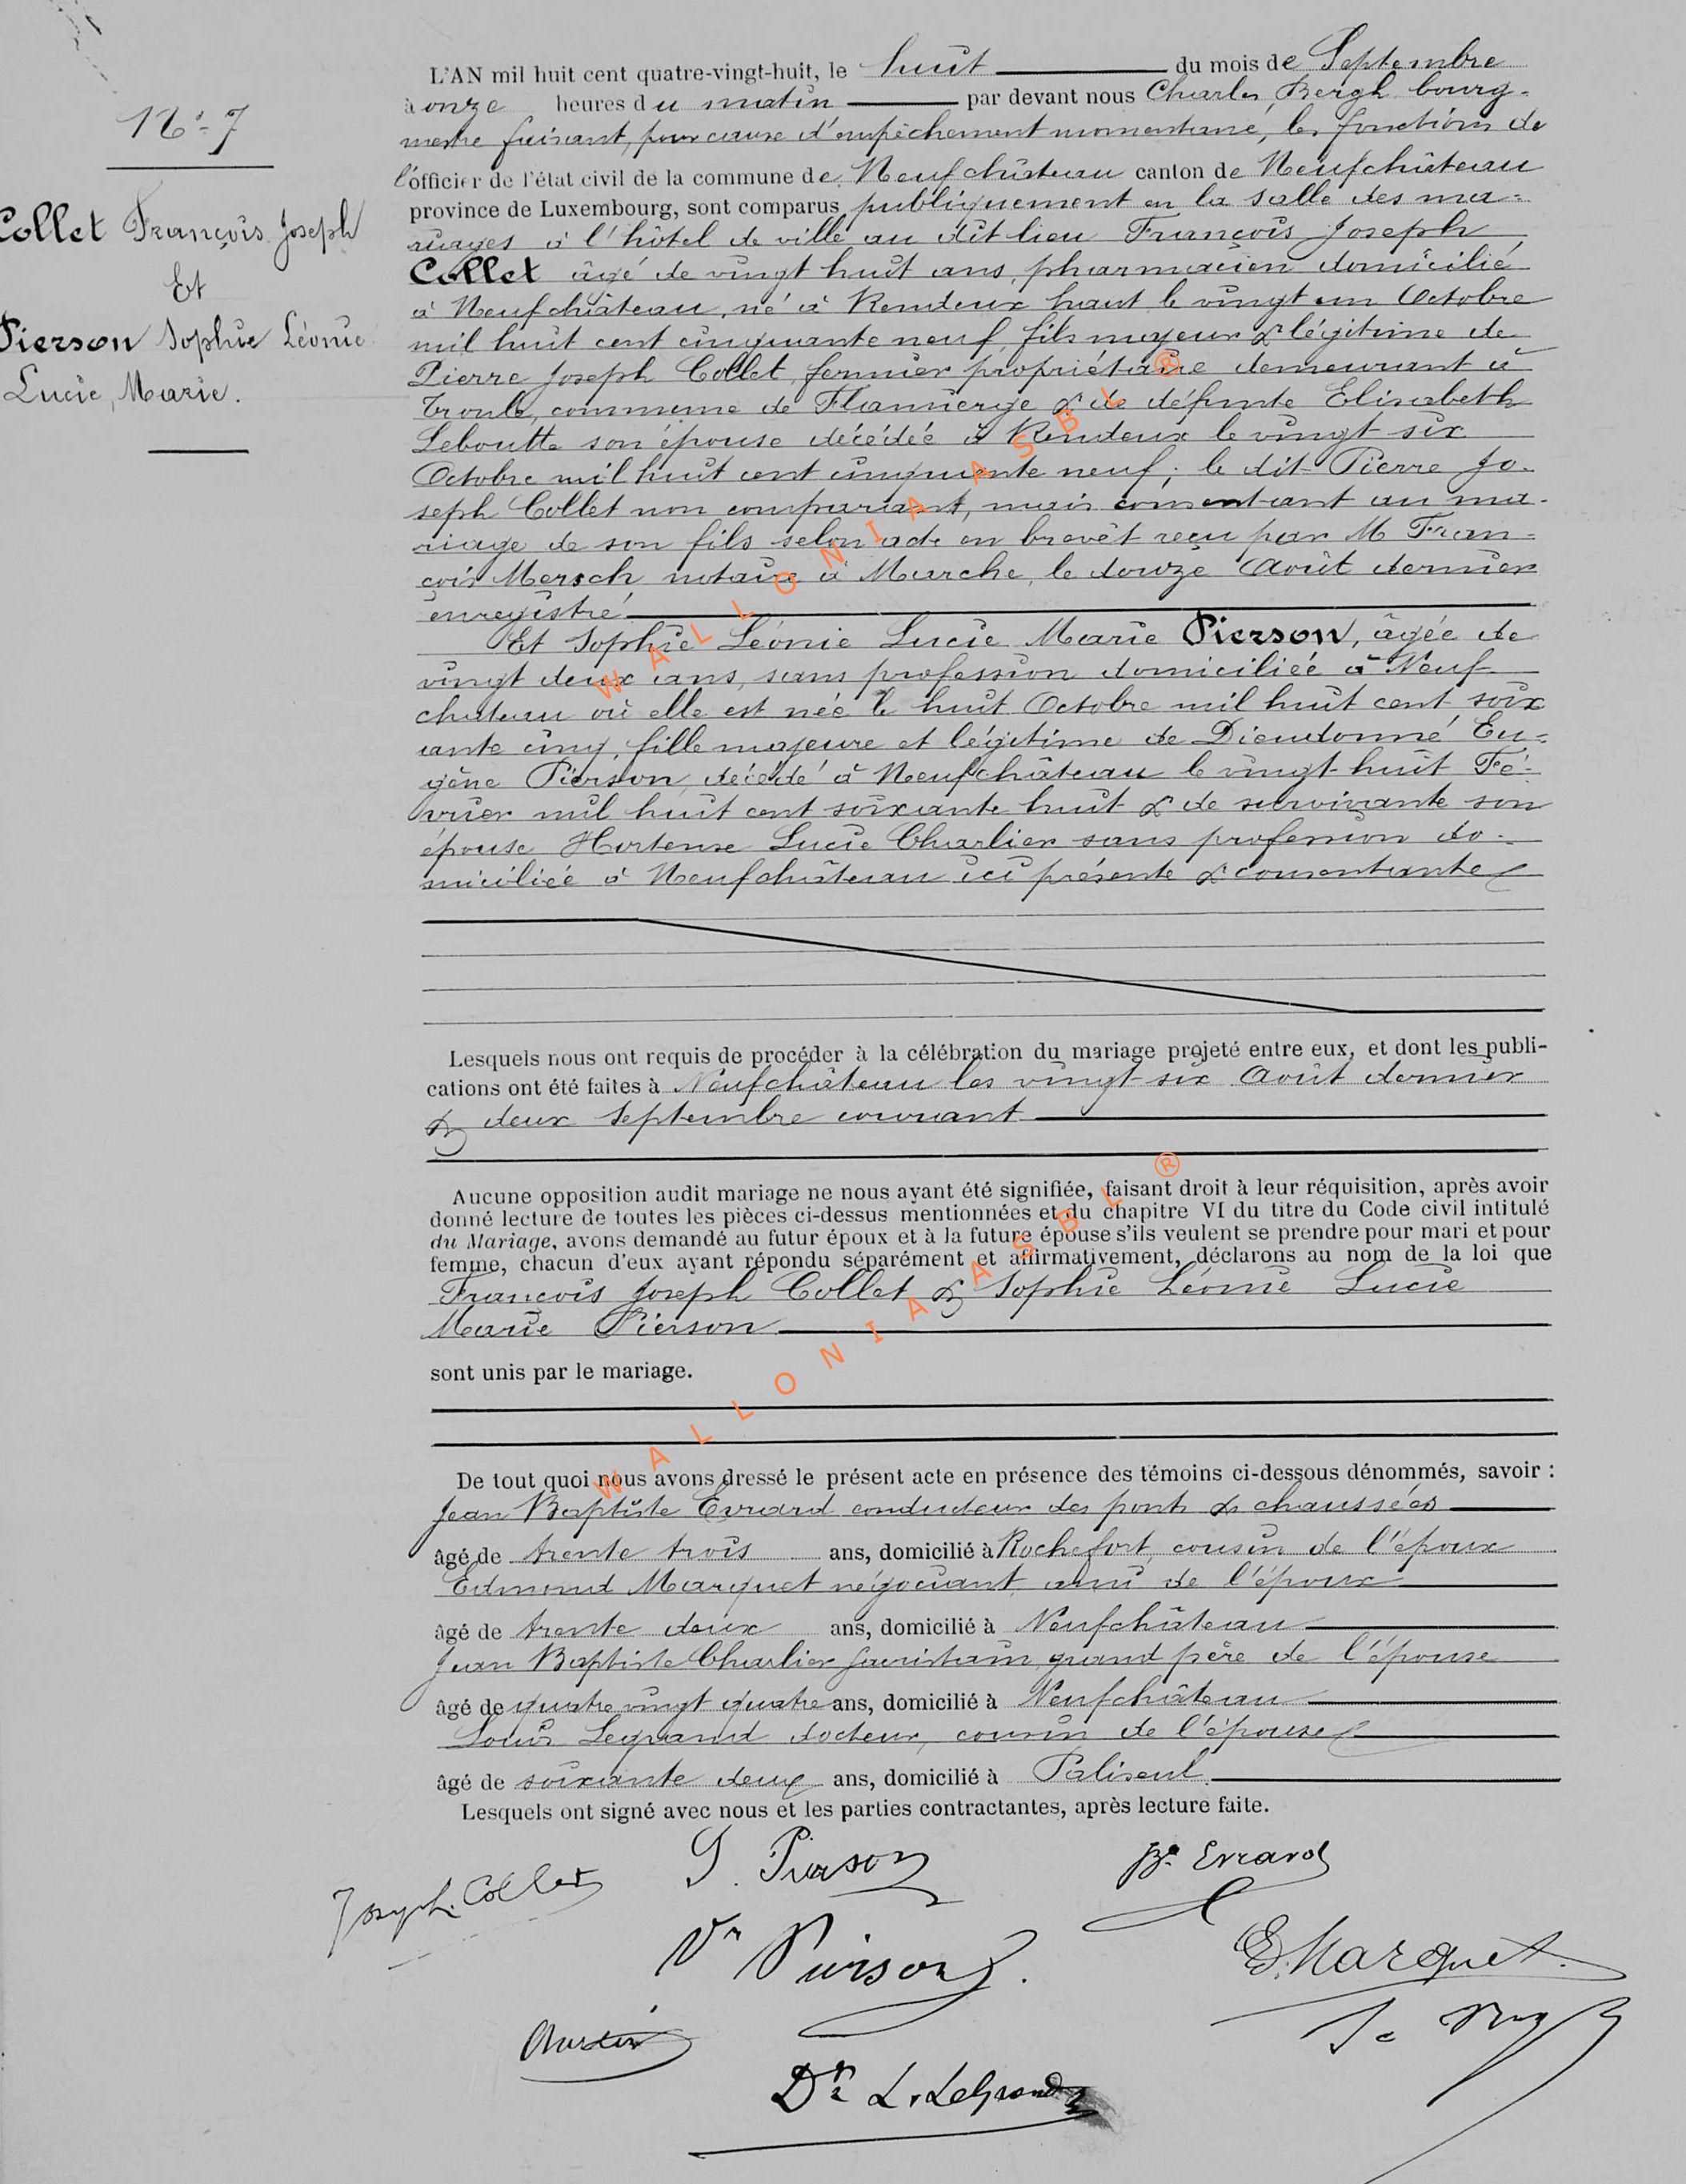 N°- 7
Collet François Joseph
Et
Pierson Sophie Léonie
Lucie, Marie.
L'AN mil huit cent quatre-vingt-huit, le huit du mois de Septembre
à onze heures du matin par devant nous Charles Bergh bourg-
mestre faisant, pour cause d'empêchement momentané, les fonctions de
l'officier de l'état civil de la commune de Neufchâteau canton de Neufchâteau
province de Luxembourg, sont comparus publiquement en la salle des ma-
riages à l'hôtel de ville au dit lieu François Joseph
Collet âgé de vingt huit ans, pharmacien domicilié
à Neufchâteau, né à Rendeux haut le vingt un Octobre
mil huit cent cinquante neuf, fils majeur & légitime de
Pierre Joseph Collet, fermier propriétaire demeurant à
commune de Flamierge & de défunte Elisabeth
Leboutte son épouse décédée à Rendeux le vingt six
Octobre mil huit cent cinquante neuf; le dit Pierre Jo-
seph Collet non comparant, mais consentant au ma-
riage de son fils selon acte en brevêt reçu par M Fran-
çois Mersch, notaire à Marche, le douze Août dernier
enregistré
Et Sophie Léonie Lucie Marie Pierson, âgée de
vingt deux ans, sans profession domiciliée à Neuf
chateau où elle est née le huit Octobre mil huit cent soix
ante cinq, fille majeure et légitime de Dieudonné Eu-
gène Pierson, décédé à Neufchâteau le vingt-huit Fé-
vrier mil huit cent soixante huit & de survivante son
épouse Hortense Lucie Charlier sans profession do-
miciliée à Neufchâteau ici présente & consentante
Lesquels nous ont requis de procéder à la célébration du mariage projeté entre eux, et dont les publi-
cations ont été faites à Neufchâteau les vingt-six Août dernier
& deux Septembre courant
Aucune opposition audit mariage ne nous ayant été signifiée, faisant droit à leur réquisition, après avoir
donné lecture de toutes les pièces ci-dessus mentionnées et du chapitre VI du titre du Code civil intitulé
du Mariage, avons demandé au futur époux et à la future épouse s'ils veulent se prendre pour mari et pour
femme, chacun d'eux ayant répondu séparément et affirmativement, déclarons au nom de la loi que
François Joseph Collet & Sophie Léonie Lucie
Marie Pierson
sont unis par le mariage.
De tout quoi nous avons dressé le présent acte en présence des témoins ci-dessous dénommés, savoir :
Jean Baptiste Evrard conducteur des ponts & chaussées
âgé de trente trois ans, domicilié à Rochefort, cousin de l'époux
Edmond Marquet négociant, ami de l'époux
âgé de trente deux ans, domicilié à Neufchâteau
Jean Baptiste Charlier sacristain, grand père de l'épouse
âgé de quatre vingt quatre ans, domicilié à Neufchâteau
Louis Legrand docteur, cousin de l'épouse
âgé de soixante deux ans, domicilié à Paliseul
Lesquels ont signé avec nous et les parties contractantes, après lecture faite.
Joseph Collet
S. Pierson
Bte Evrard
Ve Pierson
E. Marquet
Dr L. LeGrand
WALLONIA ASBL ®
WALLONIA ASBL ®